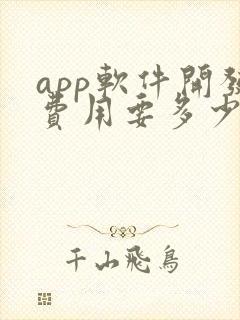 app軟件開發
費用要多少
千山飛鳥